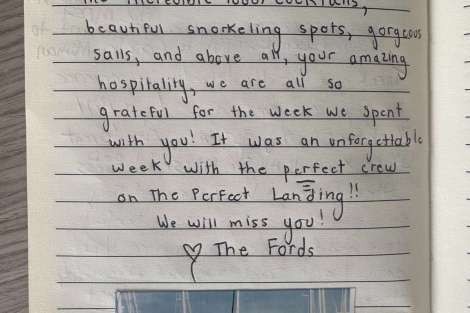 the incredible food/cocktails,
beautiful snorkeling spots, gorgeous
sails, and above all, your amazing
hospitality, we are all so
grateful for the week we spent
with you! It was an unforgettable
week with the perfect crew
on The Perfect Landing!!
We will miss you!
♡ The Fords